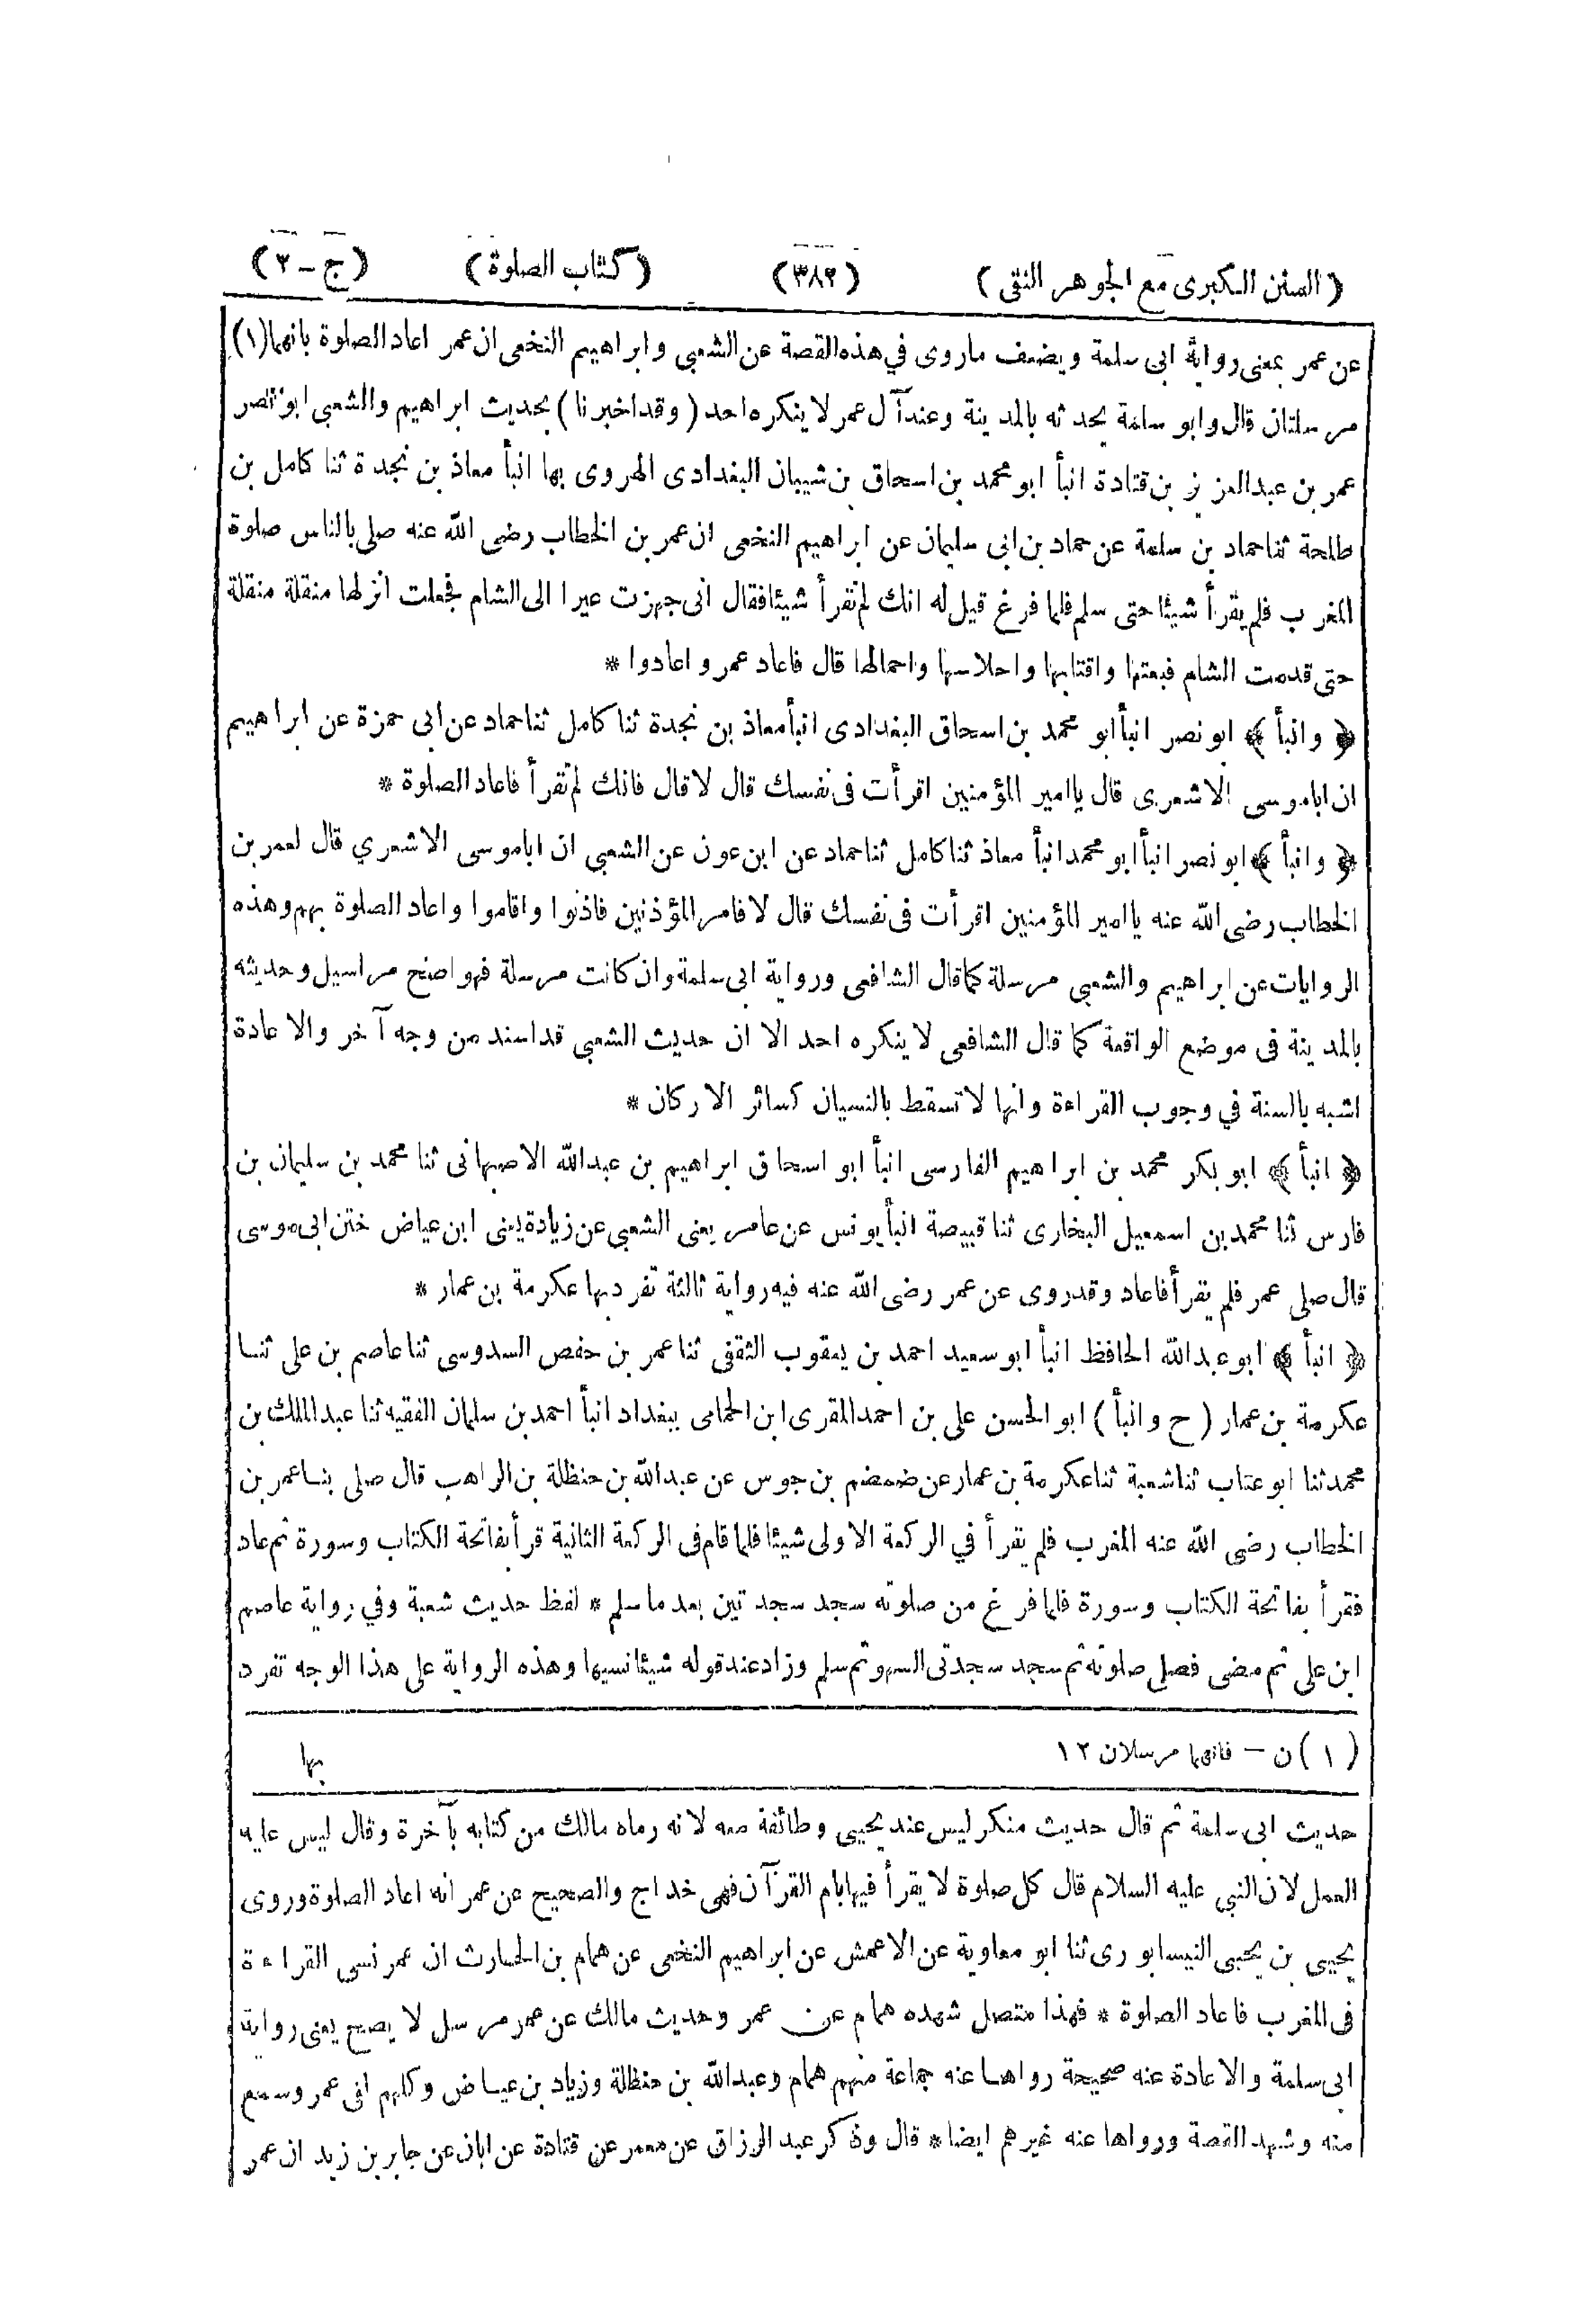 (السنن الكبرى مع الجوهر النقى) (٣٨٢) (كتاب الصلوة) (ج-٢)
عن عمر بمعنى رواية ابى سلمة ويضعف ماروى في هذه القصة عن الشعبي وابراهيم النخعى ان عمر اعاد الصلوة بانهما(١)
مرسلتان قال وابو سلمة يحدثه بالمدينة وعند آل عمر لا ينكره احد (وقد اخبرنا) بحديث ابراهيم والشعبى ابو نصر
عمر بن عبد العزيز بن قتادة انبأ ابو محمد بن اسحاق بن شيبان البغدادى الهروى بها انبأ معاذ بن نجدة ثنا كامل بن
طلحة ثنا حماد بن سلمة عن حماد بن ابى سليمان عن ابراهيم النخعى ان عمر بن الخطاب رضى الله عنه صلى بالناس صلوة
المغرب فلم يقرأ شيئا حتى سلم فلما فرغ قيل له انك لم تقرأ شيئا فقال انى جهزت عيرا الى الشام فجعلت انزلها منقلة منقلة
حتى قدمت الشام فبعتها واقتابها واحلاسها واحمالها قال فاعاد عمر واعادوا *
﴿ وانبأ ﴾ ابو نصر انبأ ابو محمد بن اسحاق البغدادى انبأ معاذ بن نجدة ثنا كامل ثنا حماد عن ابى حمزة عن ابراهيم
ان اباموسى الاشعرى قال يا امير المؤمنين اقرأت فى نفسك قال لا قال فانك لم تقرأ فاعاد الصلوة *
﴿ وانبأ ﴾ ابو نصر انبأ ابو محمد انبأ معاذ ثنا كامل ثنا حماد عن ابن عون عن الشعبي ان اباموسى الاشعري قال لعمر بن
الخطاب رضى الله عنه يا امير المؤمنين اقرأت فى نفسك قال لا فامر المؤذنين فاذنوا واقاموا واعاد الصلوة بهم وهذه
الروايات عن ابراهيم والشعبى مرسلة كما قال الشافعى ورواية ابى سلمة وان كانت مرسلة فهو اصح مراسيل وحديثه
بالمدينة فى موضع الواقعة كما قال الشافعى لا ينكره احد الا ان حديث الشعبي قد اسند من وجه آخر والاعادة
اشبه بالسنة في وجوب القراءة وانها لا تسقط بالنسيان كسائر الاركان *
﴿ انبأ ﴾ ابو بكر محمد بن ابراهيم الفارسى انبأ ابو اسحاق ابراهيم بن عبد الله الاصبهانى ثنا محمد بن سليمان بن
فارس ثنا محمد بن اسمعيل البخارى ثنا قبيصة انبأ يونس عن عامر يعنى الشعبي عن زيادة يعنى ابن عياض ختن ابى موسى
قال صلى عمر فلم يقرأ فاعاد وقد روى عن عمر رضى الله عنه فيه رواية ثالثة تفرد بها عكرمة بن عمار *
﴿ انبأ ﴾ ابو عبد الله الحافظ انبأ ابو سعيد احمد بن يعقوب الثقفى ثنا عمر بن حفص السدوسى ثنا عاصم بن على ثنا
عكرمة بن عمار (ح وانبأ) ابو الحسن على بن احمد المقرى ابن الحمامى ببغداد انبأ احمد بن سلمان الفقيه ثنا عبد الملك بن
محمد ثنا ابو عتاب ثنا شعبة ثنا عكرمة بن عمار عن ضمضم بن جوس عن عبد الله بن حنظلة بن الراهب قال صلى بنا عمر بن
الخطاب رضى الله عنه المغرب فلم يقرأ في الركعة الاولى شيئا فلما قام فى الركعة الثانية قرأ بفاتحة الكتاب وسورة ثم عاد
فقرأ بفاتحة الكتاب وسورة فلما فرغ من صلوته سجد سجدتين بعد ما سلم * لفظ حديث شعبة وفي رواية عاصم
ابن على ثم مضى فصلى صلوته ثم سجد سجدتى السهو ثم سلم وزاد عند قوله شيئا نسيها وهذه الرواية على هذا الوجه تفرد
(١) ن - فانهما مرسلان ١٢
بها
حديث ابى سلمة ثم قال حديث منكر ليس عند يحيى وطائفة معه لانه رماه مالك من كتابه بآخرة وقال ليس عليه
العمل لان النبي عليه السلام قال كل صلوة لا يقرأ فيها بام القرآن فهى خداج والصحيح عن عمر انه اعاد الصلوة وروى
يحيى بن يحيى النيسابورى ثنا ابو معاوية عن الاعمش عن ابراهيم النخعى عن همام بن الحارث ان عمر نسى القراءة
فى المغرب فاعاد الصلوة * فهذا متصل شهده همام عن عمر وحديث مالك عن عمر مرسل لا يصح يعنى رواية
ابى سلمة والاعادة عنه صحيحة رواها عنه جماعة منهم همام وعبد الله بن حنظلة وزياد بن عياض وكلهم لقى عمر وسمع
منه وشهد القصة ورواها عنه غيرهم ايضا * قال وذكر عبد الرزاق عن معمر عن قتادة عن ابان عن جابر بن زيد ان عمر